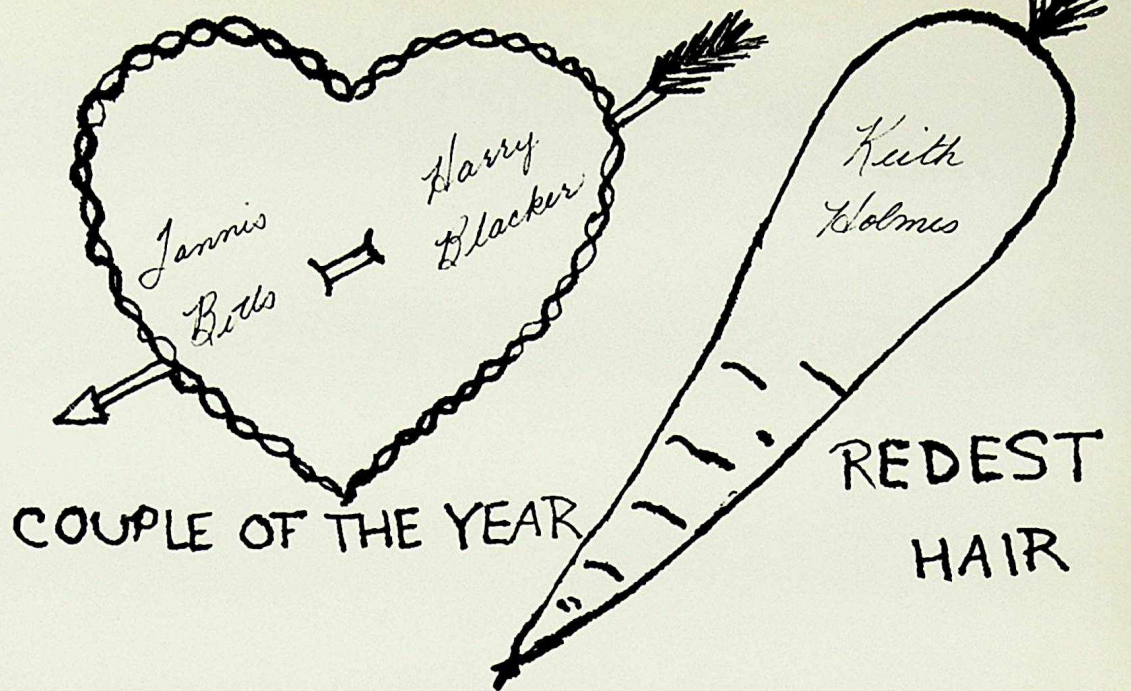 Jannis
Betts
Harry
Blacker
COUPLE OF THE YEAR
Keith
Holmes
REDEST
HAIR